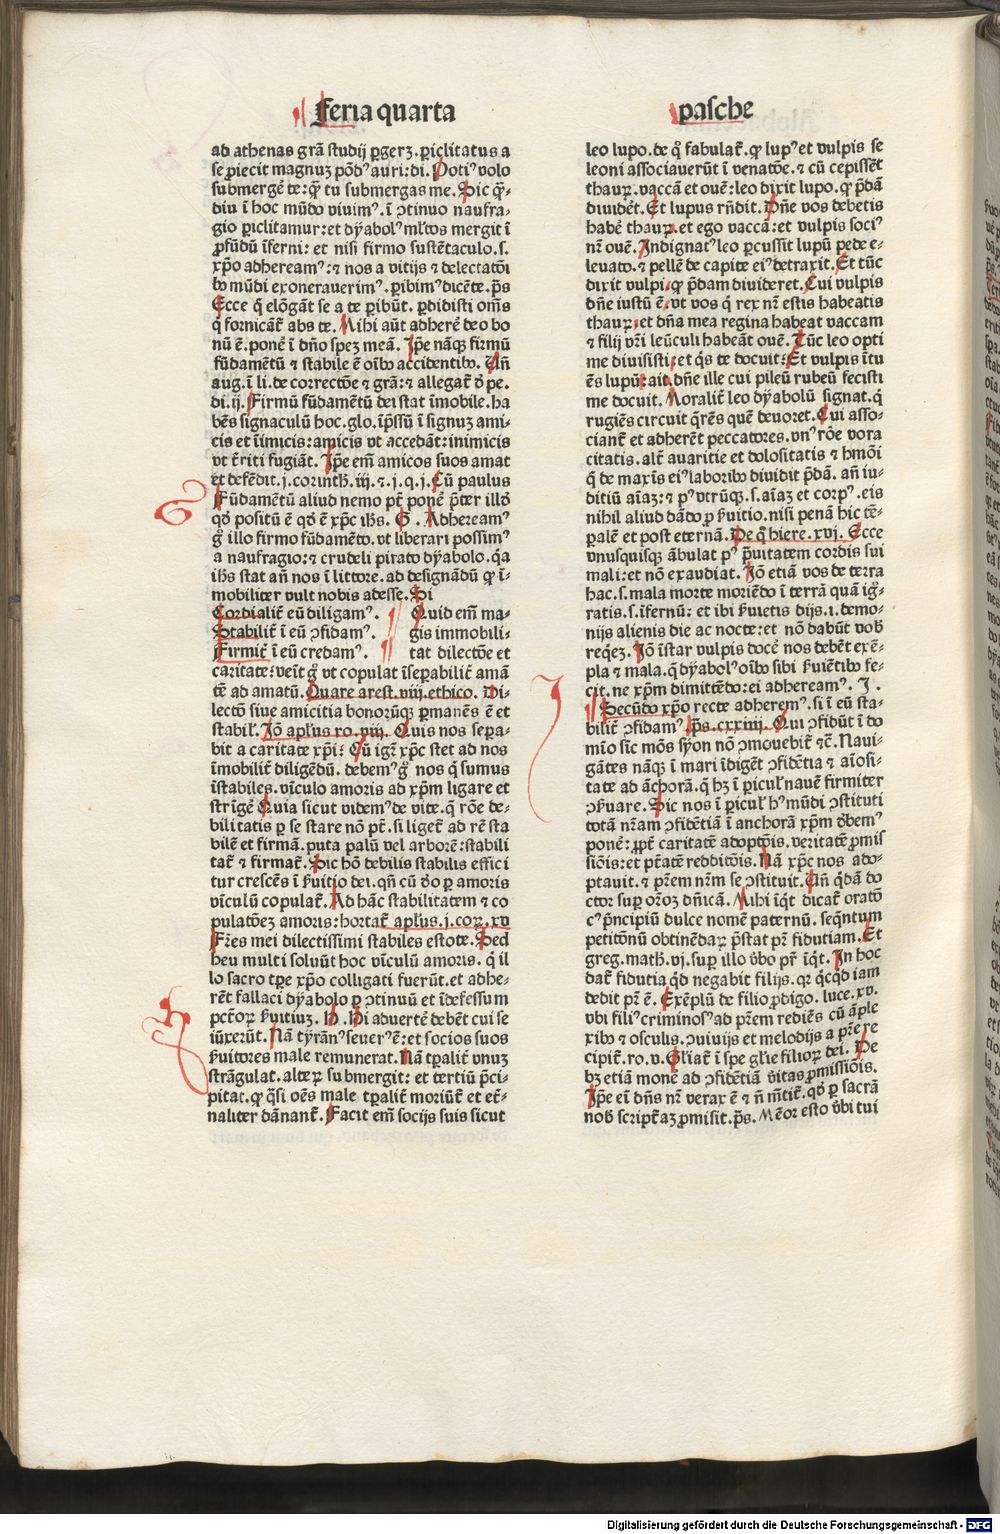 Feria quarta
pasche
ad athenas grã studij ꝑgerꝫ. ꝑiclitatus a
se ꝓiecit magnuꝫ põdꝰ auri: di. Potiꝰ volo
submergẽ te: q̃ tu submergas me. Sic q̃-
diu ĩ hoc mũdo viuimꝰ. ĩ ꝯtinuo naufra-
gio ꝑiclitamur: et dyabolꝰ mlt̃os mergit ĩ
ꝓfũdũ ĩferni: et nisi firmo sustẽtaculo .s.
xp̃o adhereamꝰ: ⁊ nos a vitijs ⁊ delectatõi
bꝰ mũdi exonerauerimꝰ. ꝑibimꝰ dicẽte. ps̃
Ecce q̃ elõgãt se a te ꝑibũt. ꝑdidisti om̃s
q̃ fornicãt̃ abs te. Mihi aũt adherẽ deo bo
nũ ẽ. ponẽ ĩ dño speꝫ meã. Ip̃e nãqꝫ firmũ
fũdamẽtũ ⁊ stabile ẽ oĩbꝰ accidentibꝰ. Uñ
aug. ĩ li. de correctõe ⁊ grã: ⁊ allegat̃ ð pe.
di. ij. Firmũ fũdamẽtũ dei stat ĩmobile. ha
bẽs signaculũ hoc. glo. ĩp̃ssũ ĩ signuꝫ ami-
cis et ĩimicis: amicis vt accedãt: inimicis
vt t̃riti fugiãt. Ip̃e em̃ amicos suos amat
et defẽdit. j. corinth. iij. ⁊ .j. q. j. Cũ paulus
Fũdamẽtũ aliud nemo pt̃ ponẽ p̃ter illð
qð positũ ẽ qð ẽ xp̃c ihs̃. G . Adhereamꝰ
g̃ illo firmo fũdamẽto. vt liberari possimꝰ
a naufragio: ⁊ crudeli pirato dyabolo. q̃a
ihs̃ stat añ nos ĩ littore. ad designãdũ ꝙ ĩ-
mobiliter vult nobis adesse. Si
Cordialit̃ eũ diligamꝰ.
Stabilit̃ ĩ eũ ꝯfidamꝰ.
Firmit̃ ĩ eũ credamꝰ.
Quid em̃ ma-
gis immobili-
tat dilectõe et
caritate: veĩt g̃ vt copulat ĩseꝑabilit̃ amã
tẽ ad amatũ. Quare arest. viij. ethico. Di-
lectõ siue amicitia bonorũqꝫ ꝑmanẽs ẽ et
stabil̃. Iõ apl̃us ro. viij. Quis nos seꝑa-
bit a caritate xp̃i: Cũ igr̃ xp̃c stet ad nos
ĩmobilit̃ diligẽdũ. debemꝰ g̃ nos q̃ sumus
ĩstabiles. vĩculo amoris ad xp̃m ligare et
strĩgẽ Quia sicut videmꝰ de vite. q̃ rõe de-
bilitatis ꝑ se stare nõ pt̃. si liget̃ ad rẽ sta
bilẽ et firmã. puta palũ vel arborẽ: stabili
tat̃ ⁊ firmat̃. Sic hõ debilis stabilis effici
tur crescẽs ĩ ẜuitio dei. qñ cũ ðo ꝑ amoris
vĩculũ copulat̃. Ad hãc stabilitatem ⁊ co
pulatõeꝫ amoris: hortat̃ apl̃us. j. coꝝ. xv
Fr̃es mei dilectissimi stabiles estote. Sed
heu multi soluũt hoc vĩculũ amoris. q̃ il
lo sacro tp̃e xp̃o colligati fuerũt. et adhe-
rẽt fallaci dyabolo ꝑ ꝯtinuũ et ĩdefessum
pctõꝝ ẜuitiuꝫ. H . Si aduertẽ debẽt cui se
iũxerũt. Nã tyrãnꝰ seuerꝰ ẽ: et socios suos
ẜuitores male remunerat. Nã tꝑalit̃ vnuꝫ
strãgulat. alteꝝ submergit: et tertiũ p̃ci-
pitat. ꝙ q̃si oẽs male tꝑalit̃ moriũt̃ et et̃-
naliter dãnant̃. Facit em̃ socijs suis sicut
leo lupo. de q̃ fabulat̃. ꝙ lupꝰ et vulpis se
leoni associauerũt ĩ venatõe. ⁊ cũ cepissẽt
thauꝝ. vaccã et ouẽ: leo dixit lupo. ꝙ p̃dã
diuidẽt. Et lupus rñdit. Dñe vos debetis
habẽ thauꝝ. et ego vaccã: et vulpis sociꝰ
nr̃ ouẽ. Indignatꝰ leo ꝑcussit lupũ pede e-
leuato. ⁊ pellẽ de capite eiꝰ detraxit. Et tũc
dixit vulpi. ꝙ p̃dam diuideret. Cui vulpis
dñe iustũ ẽ. vt vos q̃ rex nr̃ estis habeatis
thauꝝ. et dña mea regina habeat vaccam
⁊ filij vr̃i leũculi habeãt ouẽ. Tũc leo opti
me diuisisti. et q̃s te docuit: Et vulpis ĩtu
ẽs lupũ: ait. dñe ille cui pileũ rubeũ fecisti
me docuit. Moralit̃ leo dyabolũ signat. q̃
rugiẽs circuit q̃rẽs quẽ deuoret. Cui asso-
ciant̃ et adherẽt peccatores. vnꝰ rõe vora
citatis. alt̃ auaritie et dolositatis ⁊ hmõi
q̃ de maxĩs eiꝰ laboribꝰ diuidit p̃dã. añ iu-
ditiũ aĩaꝫ: ⁊ pꝰ vtrũqꝫ .s. aĩaꝫ et corpꝰ. eis
nihil aliud dãdo ꝓ ẜuitio. nisi penã hic tẽ-
ꝑalẽ et post eternã. De q̃ hiere. xvj. Ecce
vnusquisqꝫ ãbulat pꝰ p̃uitatem cordis sui
mali: et nõ exaudiat. Iõ etiã vos de terra
hac .s. mala morte moriẽdo ĩ terrã quã ig̃-
ratis .s. ĩfernũ: et ibi ẜuietis dijs .i. demo-
nijs alienis die ac nocte: et nõ dabũt vob̃
req̃eꝫ. Iõ ĩstar vulpis docẽ nos debẽt exẽ-
pla ⁊ mala. q̃ dyabolꝰ oĩbꝰ sibi ẜuiẽtibꝰ fe-
cit. ne xp̃m dimittẽdo: ei adhereamꝰ. I .
Secũdo xp̃o recte adheremꝰ. si ĩ eũ sta-
bilit̃ ꝯfidamꝰ ps̃. cxxiiij. Qui ꝯfidũt ĩ do
mĩo sĩc mõs syon nõ ꝯmouebit̃ ⁊c̃. Naui-
gãtes nãqꝫ ĩ mari ĩdigẽt ꝯfidẽtia ⁊ aĩosi-
tate ad ãchorã. q̃ hꝫ ĩ ꝑicul̃ nauẽ firmiter
ꝯẜuare. Sic nos ĩ ꝑicul̃ hꝰ mũdi ꝯstituti
totã nr̃am ꝯfidẽtiã ĩ anchorã xp̃m ðbemꝰ
ponẽ: ꝓpt̃ caritatẽ adoptõis. veritatẽ ꝓmis
siõis: et pt̃atẽ redditõis. Nã xp̃c nos ado-
ptauit. ⁊ pr̃em nr̃m se ꝯstituit. Uñ q̃dã do
ctor suꝑ or̃oꝫ dñicã. Mihi ĩq̃t dicat̃ oratõ
cꝰ p̃ncipiũ dulce nomẽ paternũ. seq̃ntum
petitõnũ obtinẽdaꝝ p̃stat pr̃ fidutiam. Et
greg. math. vj. suꝑ illo ðbo pr̃ ĩq̃t. In hoc
dat̃ fidutia q̃d negabit filijs. qꝛ q̃cq̃d iam
dedit pr̃ ẽ. Exẽplũ de filio ꝓdigo. luce. xv.
vbi filiꝰ criminosꝰ ad pr̃em rediẽs cũ ãple
xibꝰ ⁊ osculis. ꝯuiuijs et melodijs a pr̃e re
cipit̃. ro. v. Gl̃iat̃ ĩ spe gl̃ie filioꝝ dei. De
bꝫ etiã monẽ ad ꝯfidẽtiã ṽitas ꝓmissiõis.
Ip̃e eĩ dñs nr̃ verax ẽ ⁊ ñ mẽtit̃. qð ꝑ sacrã
nob̃ script̃aꝫ ꝓmisit. ps̃. Mẽor esto ðbi tui
Digitalisierung gefördert durch die Deutsche Forschungsgemeinschaft - DFG